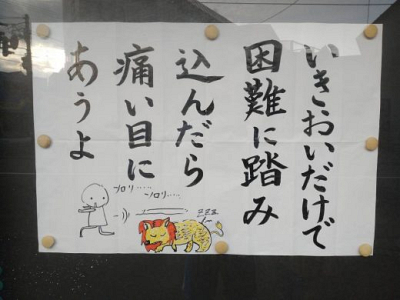 いきおいだけで
困難に踏み
込んだら
痛い目に
あうよ
ソロリ……
ソロリ……
zzz